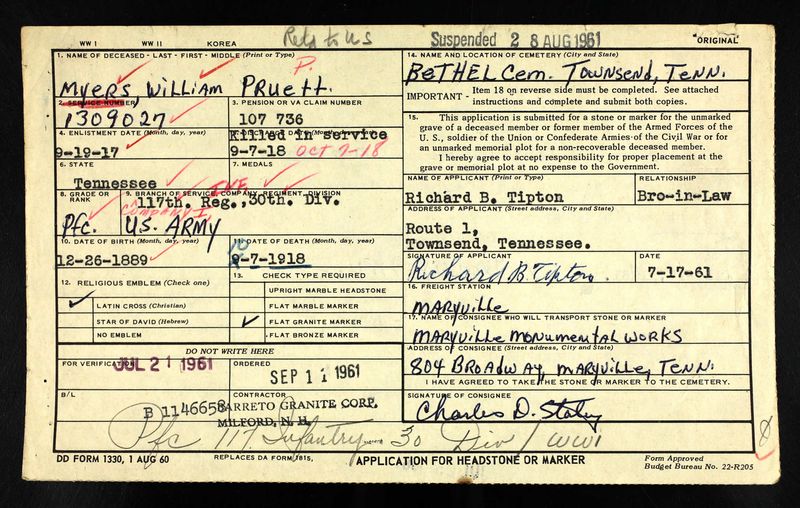 WW I WW II KOREA
Retd to US
Suspended 28 AUG 1961
"ORIGINAL"
1. NAME OF DECEASED - LAST - FIRST - MIDDLE (Print or Type)
P.
Myers, William Pruett.
2. SERVICE NUMBER
1309027
3. PENSION OR VA CLAIM NUMBER
107 736
4. ENLISTMENT DATE (Month, day, year)
9-19-17
Killed in service
9-7-18 Oct 7-18
6. STATE
Tennessee
7. MEDALS
8. GRADE OR RANK
Pfc.
9. BRANCH OF SERVICE, COMPANY, REGIMENT, DIVISION
117th. Reg., 30th. Div.
Company I
US. ARMY
10. DATE OF BIRTH (Month, day, year)
12-26-1889
11. DATE OF DEATH (Month, day, year)
10
9-7-1918
12. RELIGIOUS EMBLEM (Check one)
✓ LATIN CROSS (Christian)
STAR OF DAVID (Hebrew)
NO EMBLEM
13. CHECK TYPE REQUIRED
UPRIGHT MARBLE HEADSTONE
FLAT MARBLE MARKER
✓ FLAT GRANITE MARKER
FLAT BRONZE MARKER
DO NOT WRITE HERE
FOR VERIFICATION
JUL 21 1961
ORDERED
SEP 11 1961
B/L
B 1146658
CONTRACTOR
BARRETO GRANITE CORP.
MILFORD, N. H.
14. NAME AND LOCATION OF CEMETERY (City and State)
BETHEL Cem. Townsend, Tenn.
IMPORTANT - Item 18 on reverse side must be completed. See attached instructions and complete and submit both copies.
15. This application is submitted for a stone or marker for the unmarked
grave of a deceased member or former member of the Armed Forces of the
U. S., soldier of the Union or Confederate Armies of the Civil War or for
an unmarked memorial plot for a non-recoverable deceased member.
I hereby agree to accept responsibility for proper placement at the
grave or memorial plot at no expense to the Government.
NAME OF APPLICANT (Print or Type)
Richard B. Tipton
RELATIONSHIP
Bro-in-Law
ADDRESS OF APPLICANT (Street address, City and State)
Route 1,
Townsend, Tennessee.
SIGNATURE OF APPLICANT
Richard B Tipton
DATE
7-17-61
16. FREIGHT STATION
Maryville
17. NAME OF CONSIGNEE WHO WILL TRANSPORT STONE OR MARKER
Maryville Monumental Works
ADDRESS OF CONSIGNEE (Street address, City and State)
804 Broadway, Maryville, Tenn.
I HAVE AGREED TO TAKE THE STONE OR MARKER TO THE CEMETERY.
SIGNATURE OF CONSIGNEE
Pfc 117 Infantry 30 Div / WWI
DD FORM 1330, 1 AUG 60
REPLACES DA FORM 1815,
APPLICATION FOR HEADSTONE OR MARKER
Form Approved
Budget Bureau No. 22-R205